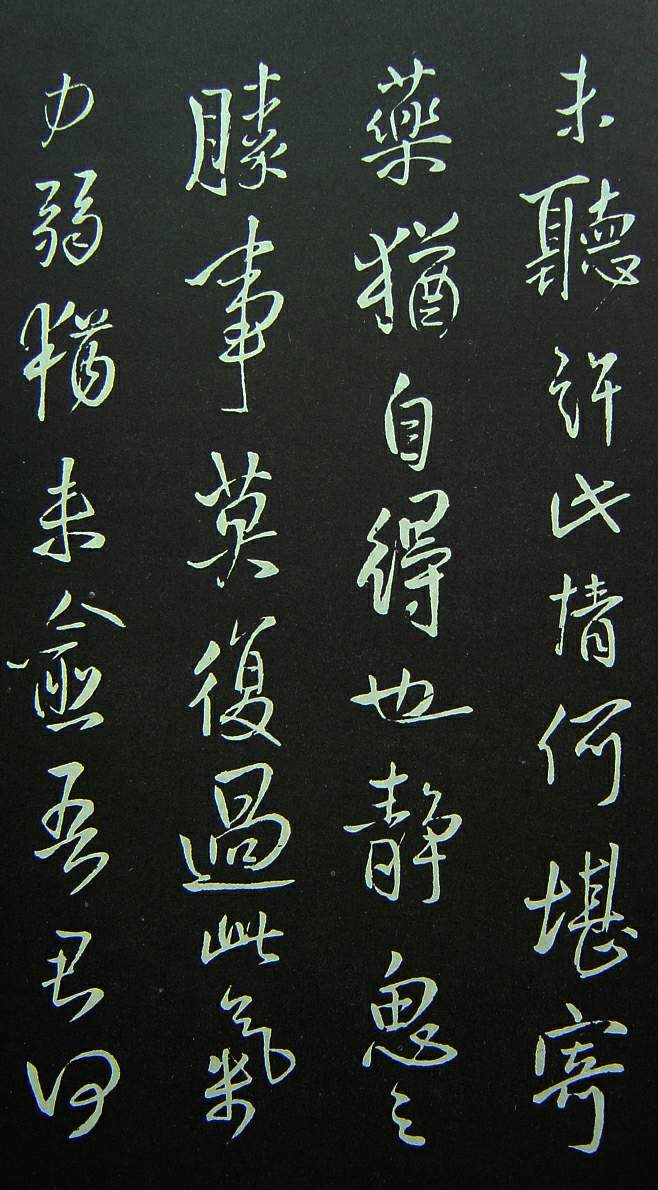 未聽許此情何堪寄
藥猶自得也靜思之
勝事莫復過此氣
力弱猶未愈吾君何